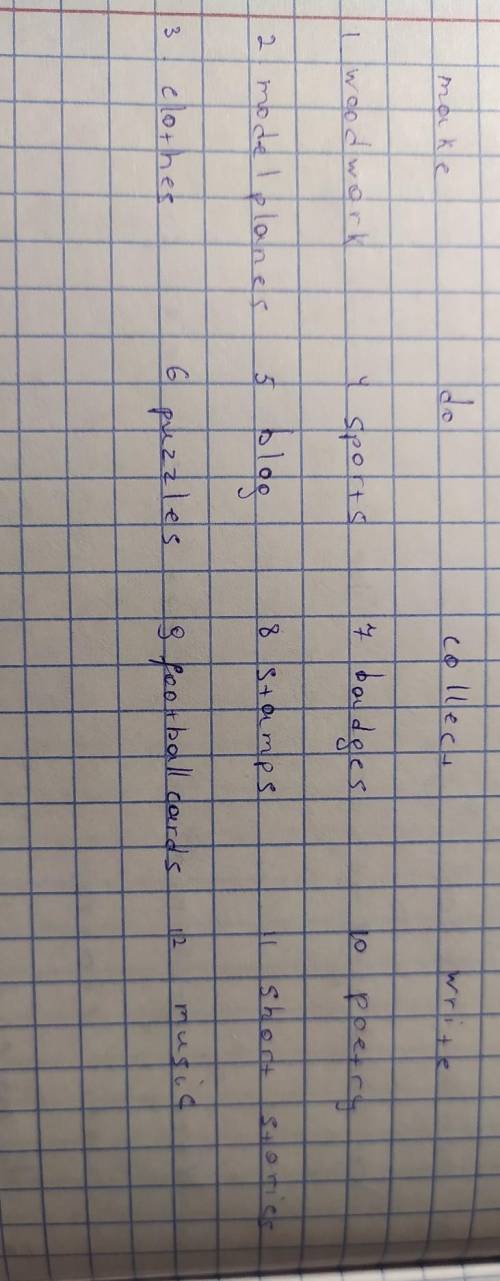 make do collect write
1 woodwork 4 sports 7 badges 10 poetry
2 model planes 5 blog 8 stamps 11 short stories
3. clothes 6 puzzles 9 football cards 12 music